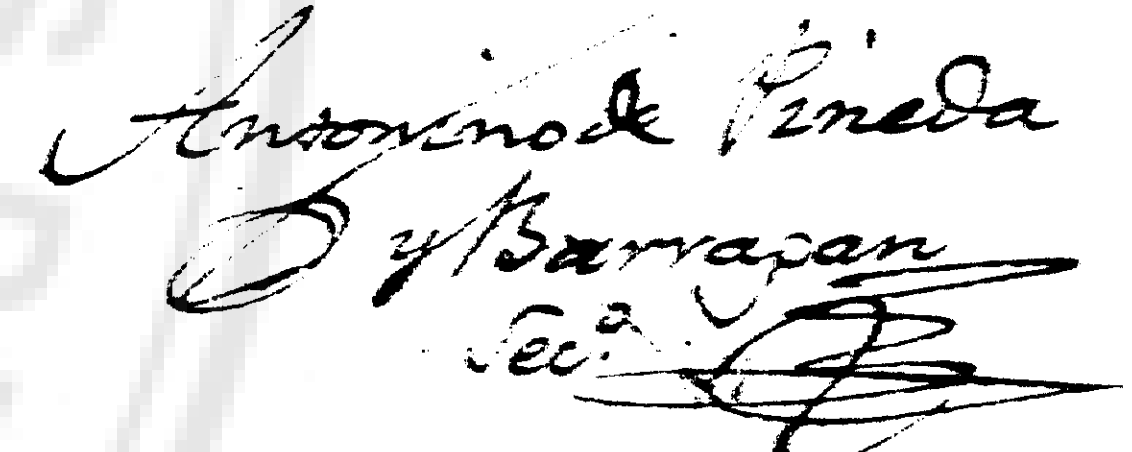 Antonino de Pineda
y Barragan
Sec.º